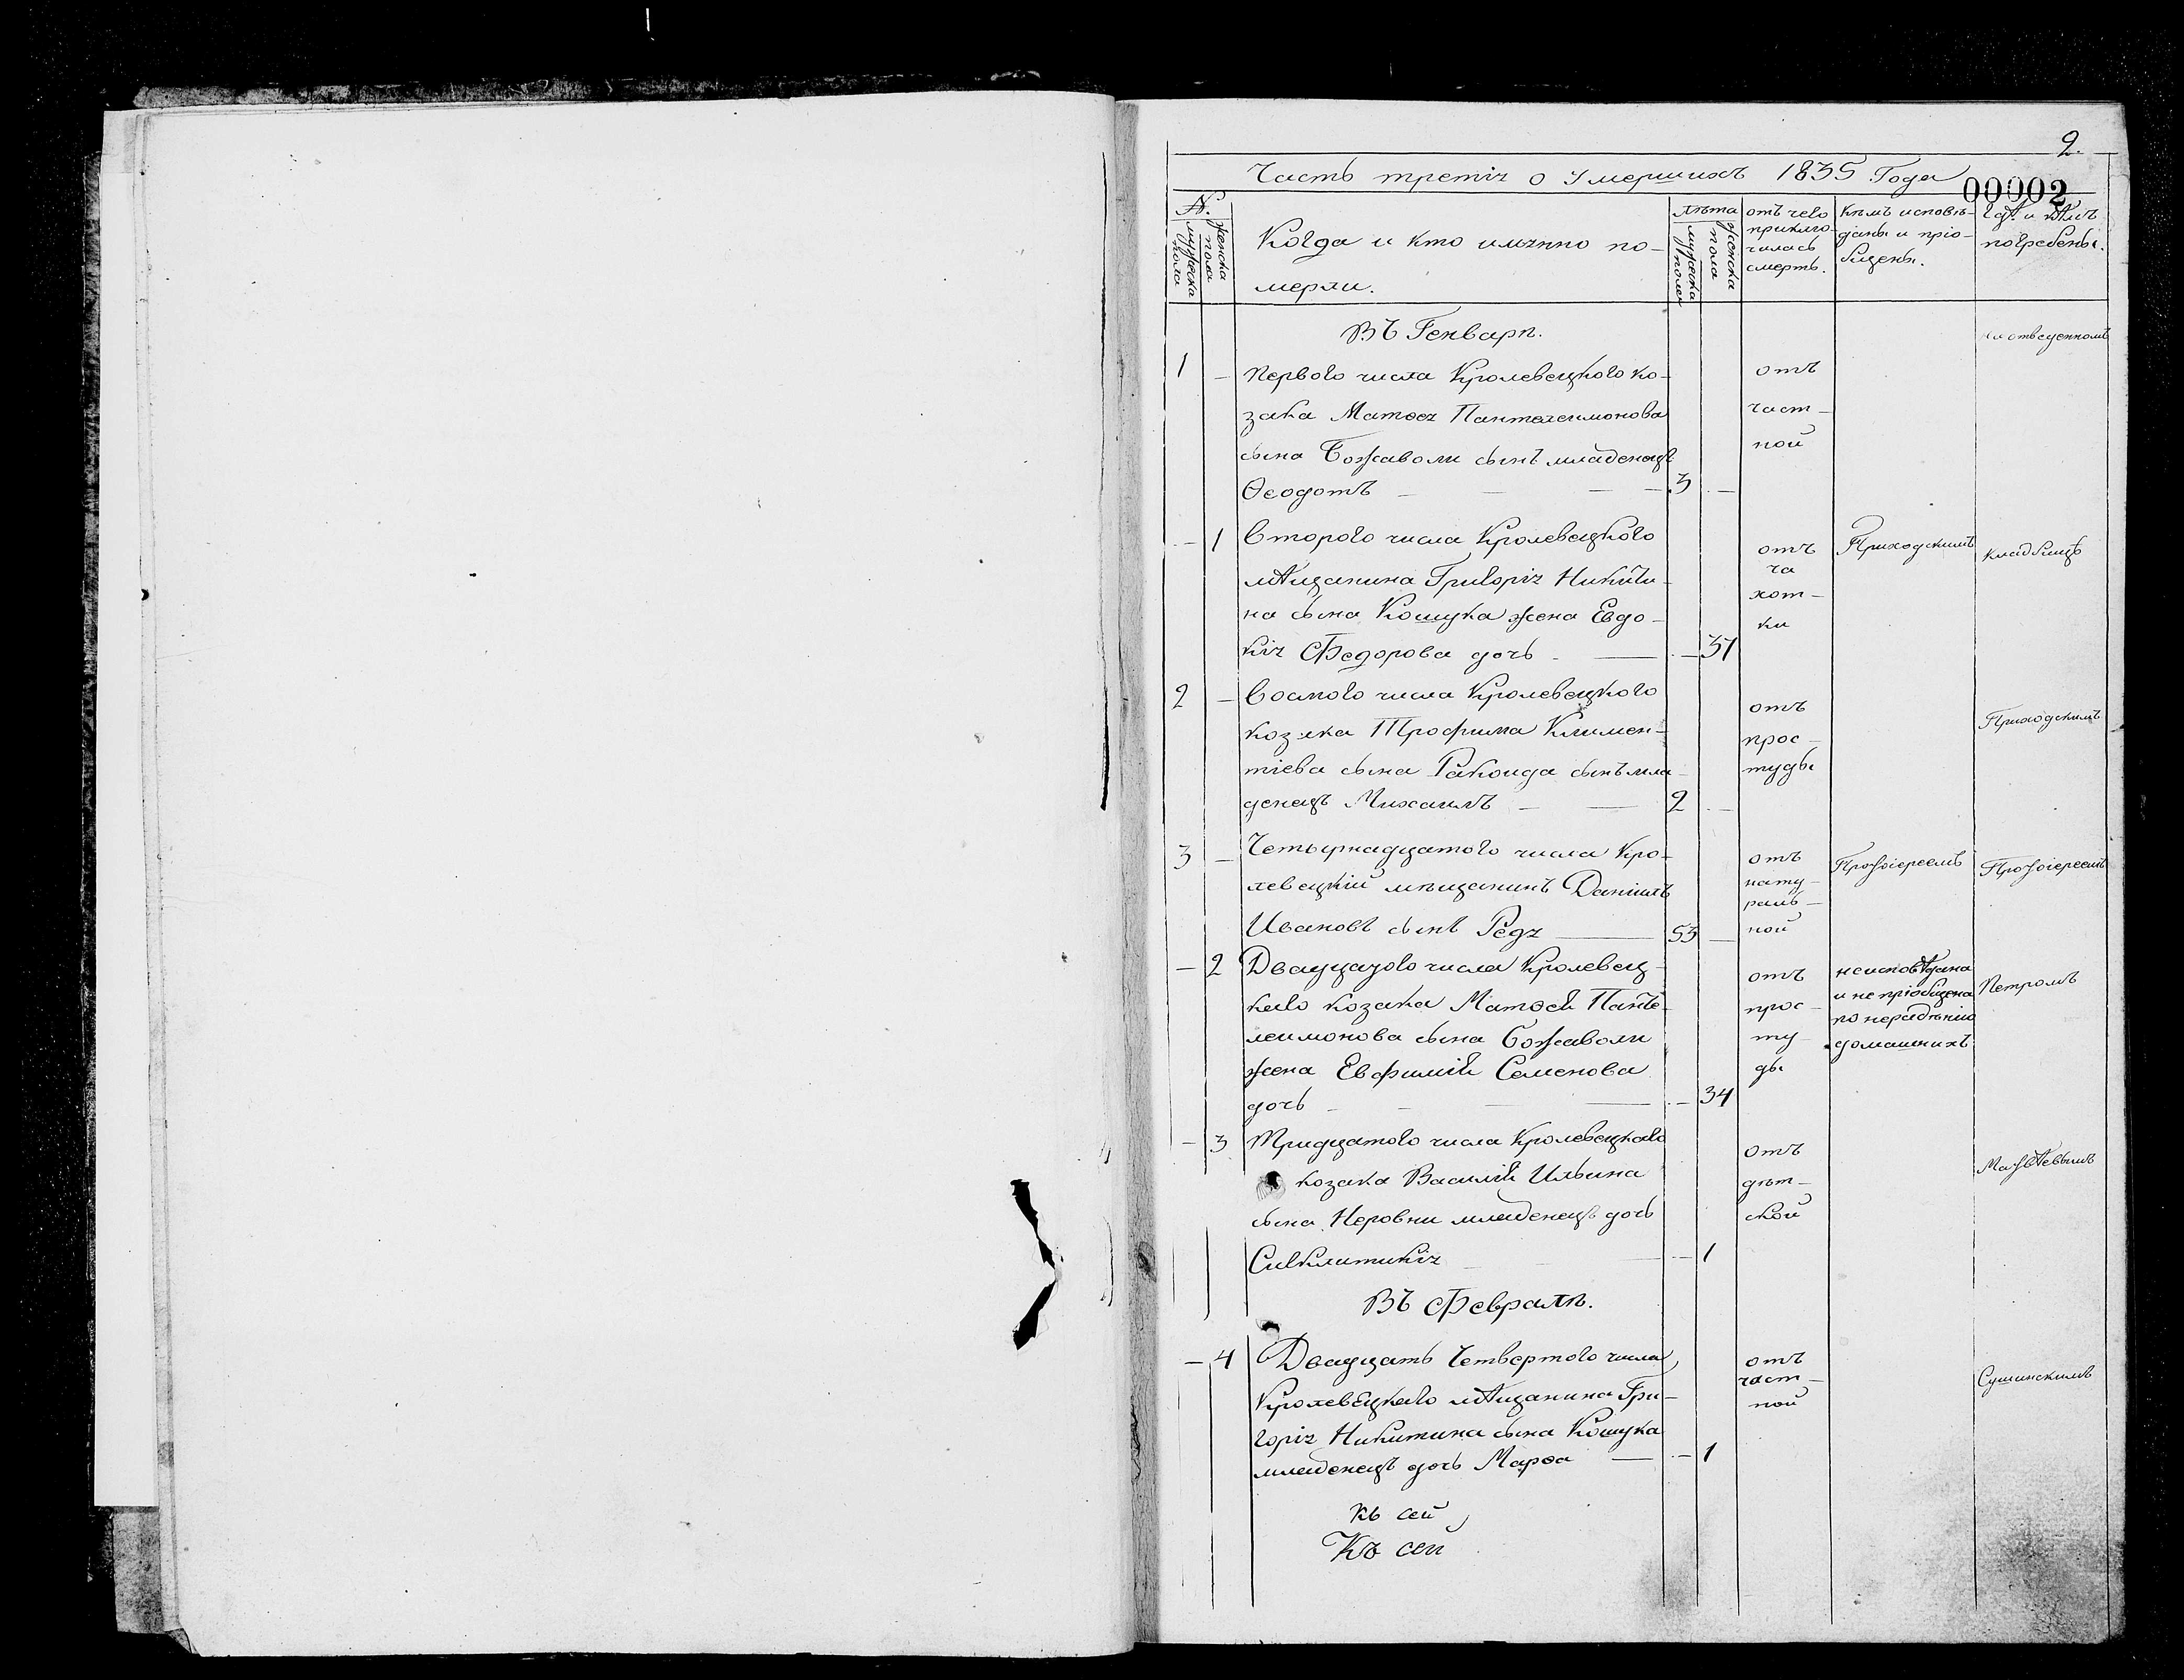 2.
Часть третія о умершихъ 1835 Года
00002
№.
мужеска пола
женска пола
Когда и кто имянно по-
мерли.
лѣта
мужеска пола
женска пола
отъ чего
приклю-
чилась
смерть.
Кѣмъ исповѣ-
даны и пріо-
бщены.
Гдѣ и кѣмъ
погребены.
Въ Генварѣ.
на отведенномъ
1 — Первого числа Кролевецкого ко-
зака Матѳея Пантелеимонова
сына Божаволи сынъ младенецъ
Ѳеодотъ — — — — 3 —
отъ
част-
ной
— 1 Второго числа Кролевецкого
мѣщанина Григорія Никити-
на сына Кошука жена Евдо-
кія Федорова дочь — — 37
отъ
ча
хот-
ки
Приходскимъ
кладбищѣ
2 — Восмого числа Кролевецкого
козака Трофима Климен-
тіева сына Ракоида сынъ мла-
денецъ Михаилъ — — 2 —
отъ
прос-
туды
Приходскимъ
3 — Четырнадцатого числа Кро-
левецкій мѣщанинъ Даніилъ
Ивановъ сынъ Редя — 53 —
отъ
нату-
раль-
ной
Протоіереемъ
Протоіереемъ
— 2 Двадцатого числа Кролевец-
каго козака Матѳея Панте-
леимонова сына Божаволи
жена Евфимія Семенова
дочь — — — — — 34
отъ
прос-
ту-
ды
неисповѣдана
и не пріобщена
по нерадѣнію
домашнихъ
Петромъ
— 3 Тридцатого числа Кролевецкаго
козака Василія Ильина
сына Неровни младенецъ дочь
Сигклитикія — 1
отъ
дѣт-
ской
Матвѣевымъ
Въ Февралѣ.
— 4 Двадцать Четвертого числа
Кролевецкаго мѣщанина Гри-
горія Никитина сына Кошука
младенецъ дочь Марѳа — — 1
отъ
част-
ной
Сушинскимъ
къ сей
Къ сей